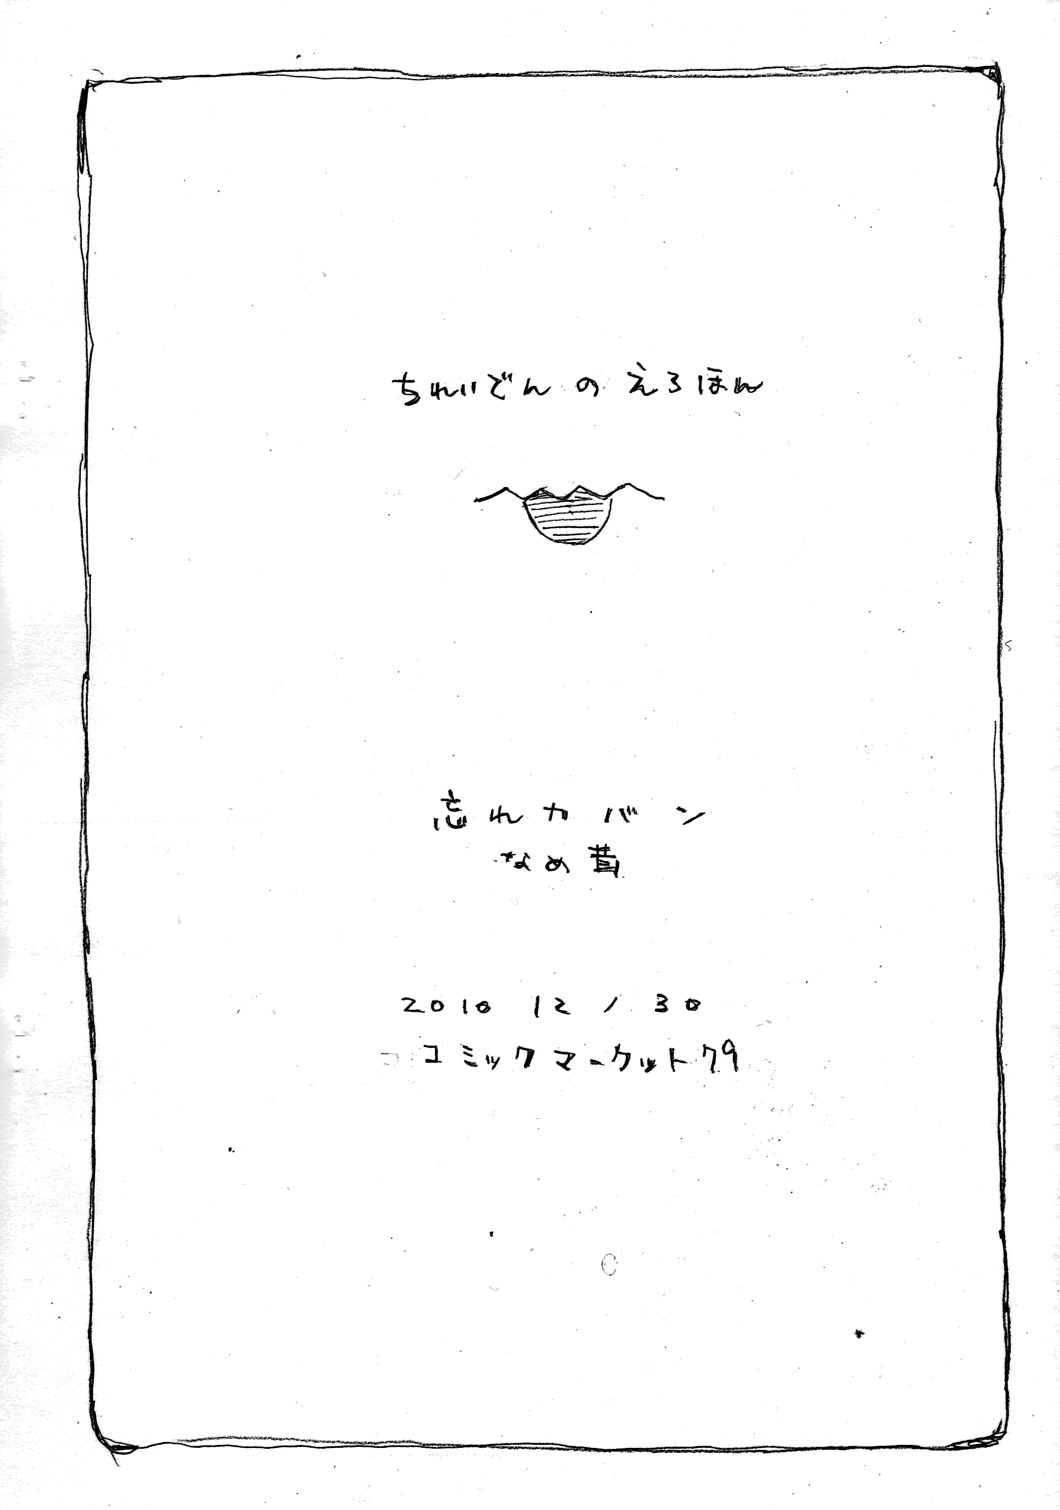 ちれいどんのえろほん
忘れカバン
なめ茸
2010 12/30
コミックマーケット79